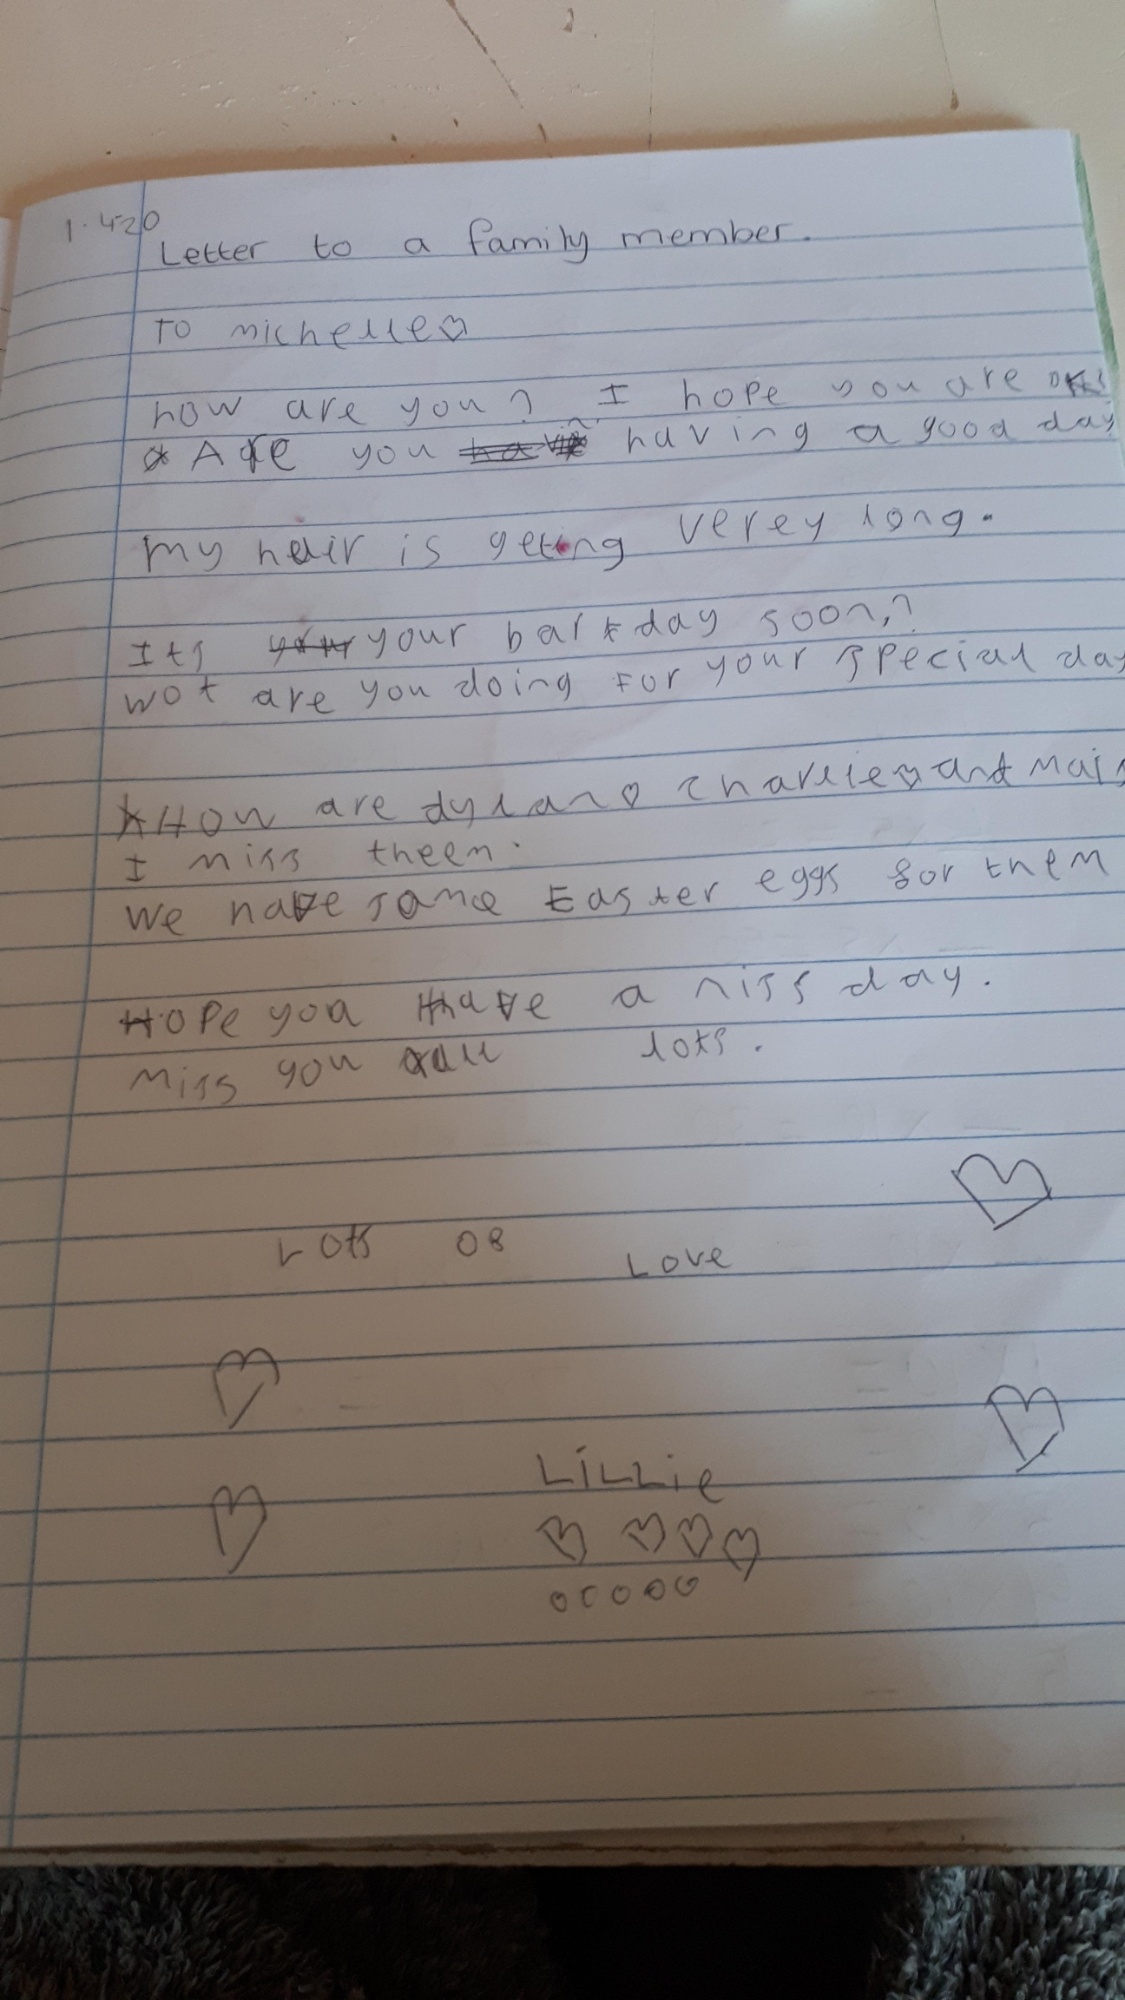 1.4.20
Letter to a family member.
To michelle♡
how are you? I hope you are ok?
Are you having a good day
my hair is geting verey long.
Its your bartday soon,?
wot are you doing for your special day
How are dylan♡ charlie♡ and
I miss theem.
We have some Easter eggs for them
Hope you have a niss day.
Miss you all lots.
Lots of
Love
Lillie
ooooo